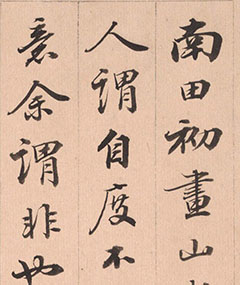 南田初畫山
人謂自度不
意余謂非也